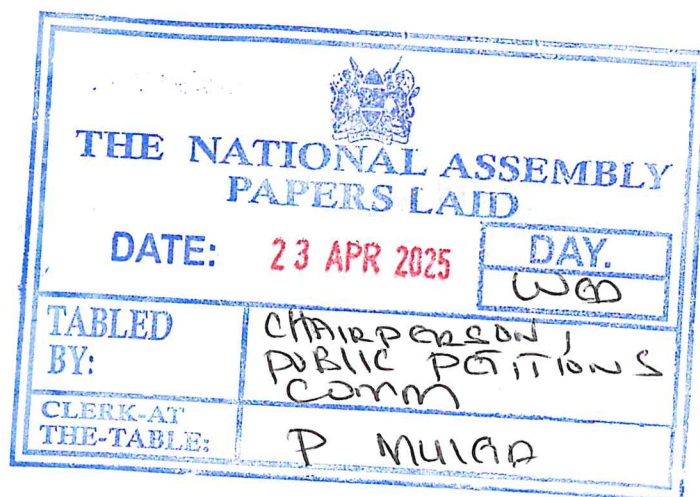 THE NATIONAL ASSEMBLY
PAPERS LAID
DATE: 23 APR 2025
DAY.
WED
TABLED
BY:
CHAIRPERSON,
PUBLIC PETITIONS
COMM
CLERK-AT
THE-TABLE:
P